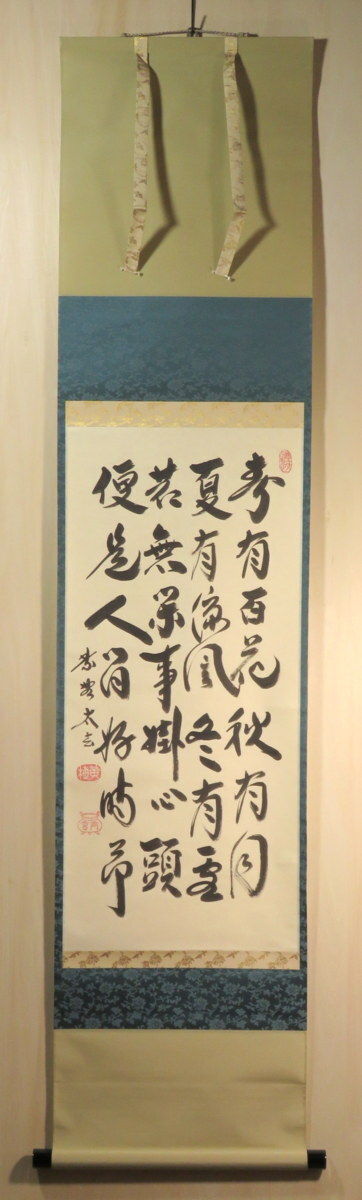 春有百花秋有月
夏有涼風冬有雪
若無閑事掛心頭
便是人間好時節